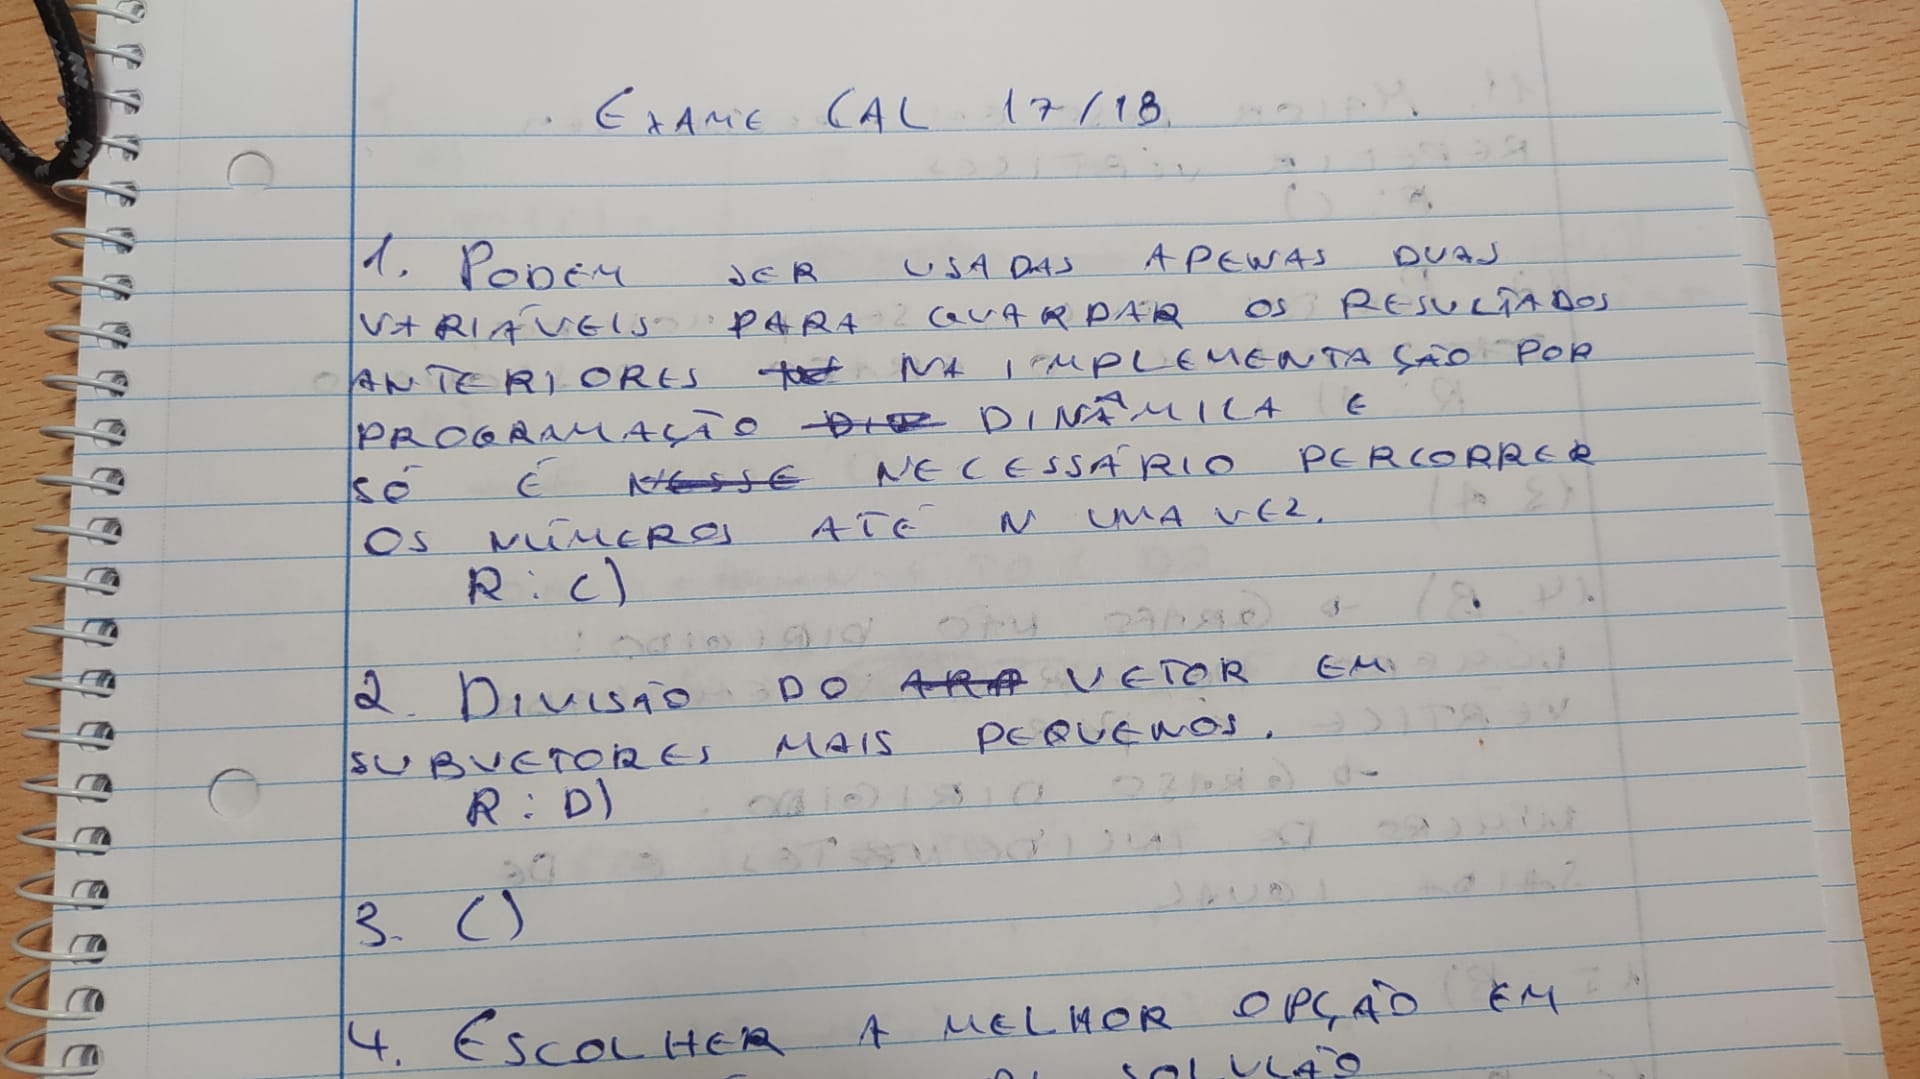 EXAME CAL 17/18
1. PODEM SER USADAS APENAS DUAS
VARIÁVEIS PARA GUARDAR OS RESULTADOS
ANTERIORES NA IMPLEMENTAÇÃO POR
PROGRAMAÇÃO DINÂMICA E
SÓ É NESSE NECESSÁRIO PERCORRER
OS NÚMEROS ATÉ N UMA VEZ.
R: C)
2. DIVISÃO DO ARA VETOR EM
SUBVETORES MAIS PEQUENOS.
R: D)
3. C)
4. ESCOLHER A MELHOR OPÇÃO EM
SOLUÇÃO